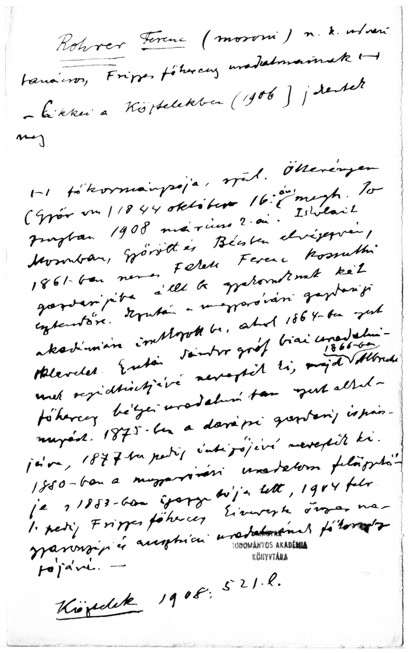 Rohrer Ferenc (mosoni) n. k. udvari
tanácsos, Frigyes főherceg uradalmainak ⊢⊣
– Cikkei a Köztelekben (1906] jelentek
meg
⊢⊣ főkormányzója, szül. Öttevényen
(Győr vm) 1844 október 16-án, megh. Po
zsonyban 1908 március 2-án. Iskoláit
Mosonban, Győrött és Bécsben elvégezvén,
1861-ben nemes Fekete Ferenc
gazdaságába állt be gyakornoknak két
esztendőre. Azután a magyaróvári gazdasági
akadémiára iratkozott be, ahol 1864-ben nyert
oklevelet. Ezután Sándor gróf biai uradalmá-
nak segédtisztjévé nevezték ki, majd 1866-ban Albrecht
főherceg bélyei uradalmában nyert alkal-
mazást. 1875-ben a darázsi gazdaság ispán-
jává, 1877-ben pedig intézőjévé nevezték ki.
1880-ban a magyaróvári uradalom felügyelő-
je s 1883-ban igazgatója lett, 1904 febr
1. pedig Frigyes főherceg összes ma-
gyarországi és ausztriai uradalmainak főkormány
zójává. —
TUDOMÁNYOS AKADÉMIA
KÖNYVTÁRA
Köztelek 1908. 521. l.